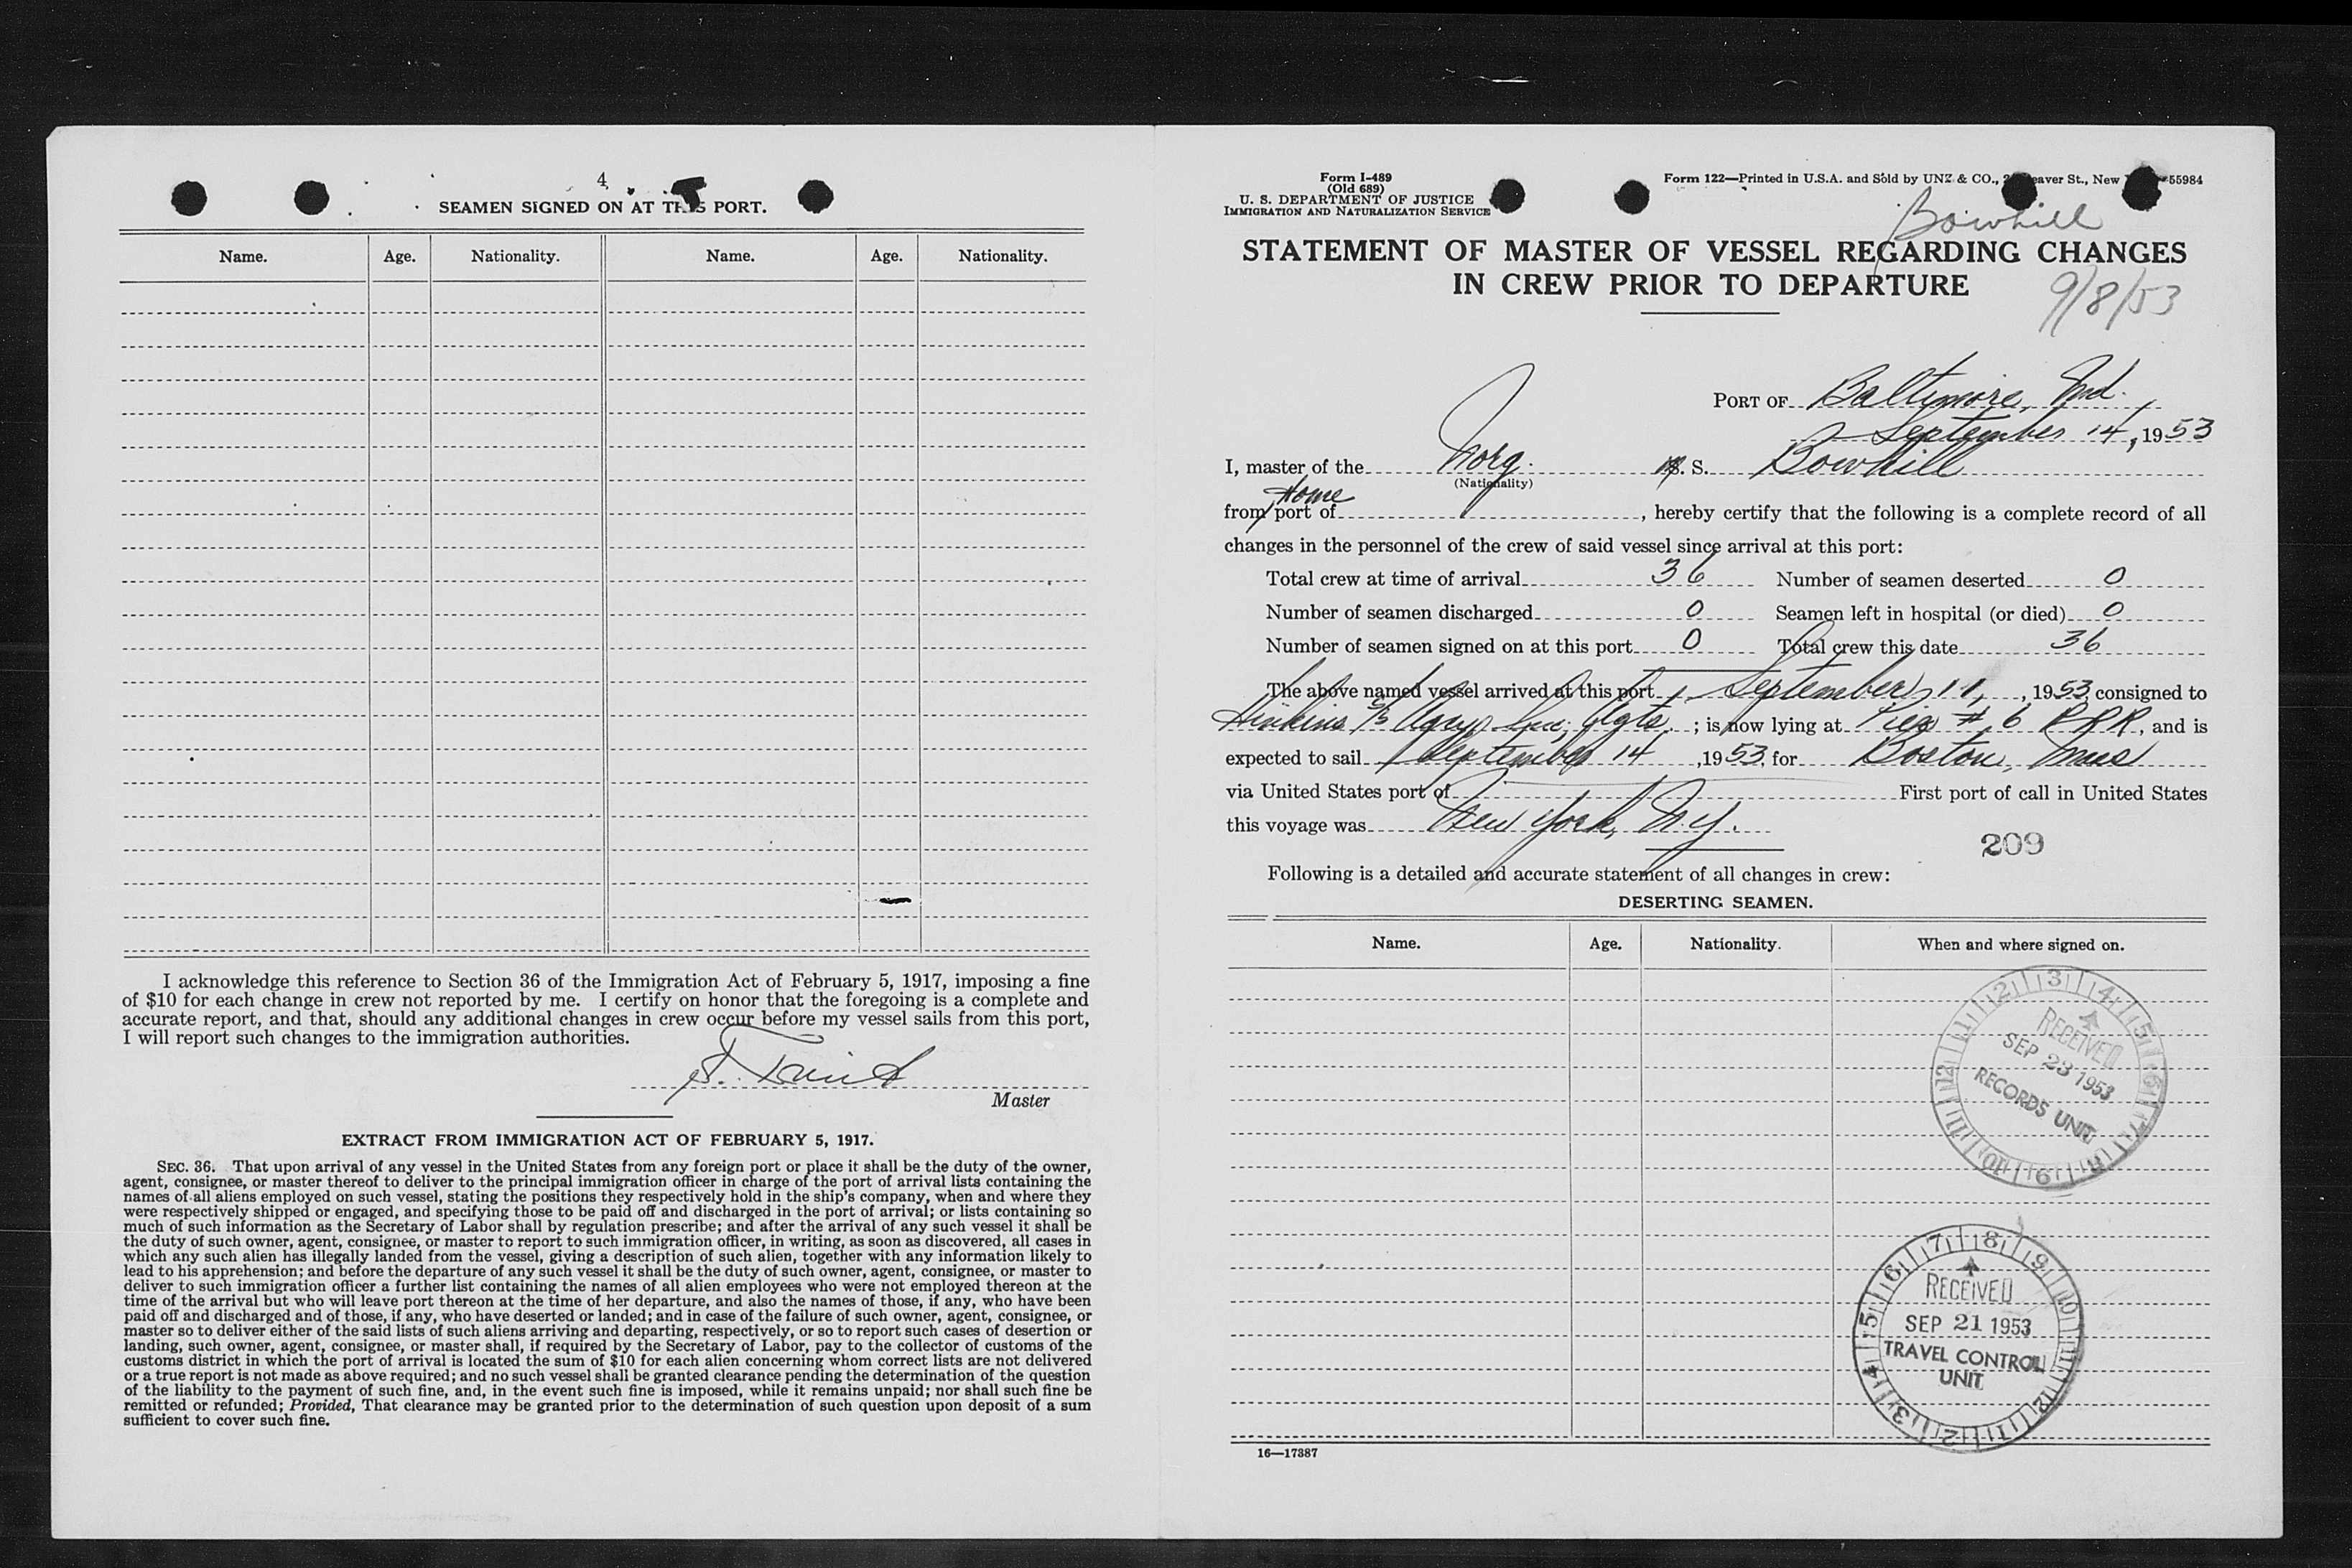 4
SEAMEN SIGNED ON AT THIS PORT.
Name. Age. Nationality. Name. Age. Nationality.
I acknowledge this reference to Section 36 of the Immigration Act of February 5, 1917, imposing a fine
of $10 for each change in crew not reported by me. I certify on honor that the foregoing is a complete and
accurate report, and that, should any additional changes in crew occur before my vessel sails from this port,
I will report such changes to the immigration authorities.
Master
EXTRACT FROM IMMIGRATION ACT OF FEBRUARY 5, 1917.
SEC. 36. That upon arrival of any vessel in the United States from any foreign port or place it shall be the duty of the owner,
agent, consignee, or master thereof to deliver to the principal immigration officer in charge of the port of arrival lists containing the
names of all aliens employed on such vessel, stating the positions they respectively hold in the ship's company, when and where they
were respectively shipped or engaged, and specifying those to be paid off and discharged in the port of arrival; or lists containing so
much of such information as the Secretary of Labor shall by regulation prescribe; and after the arrival of any such vessel it shall be
the duty of such owner, agent, consignee, or master to report to such immigration officer, in writing, as soon as discovered, all cases in
which any such alien has illegally landed from the vessel, giving a description of such alien, together with any information likely to
lead to his apprehension; and before the departure of any such vessel it shall be the duty of such owner, agent, consignee, or master to
deliver to such immigration officer a further list containing the names of all alien employees who were not employed thereon at the
time of the arrival but who will leave port thereon at the time of her departure, and also the names of those, if any, who have been
paid off and discharged and of those, if any, who have deserted or landed; and in case of the failure of such owner, agent, consignee, or
master so to deliver either of the said lists of such aliens arriving and departing, respectively, or so to report such cases of desertion or
landing, such owner, agent, consignee, or master shall, if required by the Secretary of Labor, pay to the collector of customs of the
customs district in which the port of arrival is located the sum of $10 for each alien concerning whom correct lists are not delivered
or a true report is not made as above required; and no such vessel shall be granted clearance pending the determination of the question
of the liability to the payment of such fine, and, in the event such fine is imposed, while it remains unpaid; nor shall such fine be
remitted or refunded; Provided, That clearance may be granted prior to the determination of such question upon deposit of a sum
sufficient to cover such fine.
Form I-489
(Old 689)
U. S. DEPARTMENT OF JUSTICE
IMMIGRATION AND NATURALIZATION SERVICE
Form 122—Printed in U.S.A. and Sold by UNZ & CO., eaver St., New 55984
Bowhill
STATEMENT OF MASTER OF VESSEL REGARDING CHANGES
IN CREW PRIOR TO DEPARTURE
9/8/53
PORT OF Baltimore, Md.
September 14, 1953
I, master of the Norg. S. Bowhill
(Nationality)
Home
from port of , hereby certify that the following is a complete record of all
changes in the personnel of the crew of said vessel since arrival at this port:
Total crew at time of arrival 36 Number of seamen deserted 0
Number of seamen discharged 0 Seamen left in hospital (or died) 0
Number of seamen signed on at this port 0 Total crew this date 36
The above named vessel arrived at this port September 11, , 1953, consigned to
Hinkins S/S Agcy. Inc, Agts. ; is now lying at Pier # 6 , and is
expected to sail September 14 , 1953, for Boston, Mass
via United States port of First port of call in United States
this voyage was New York, N.Y.
209
Following is a detailed and accurate statement of all changes in crew:
DESERTING SEAMEN.
Name. Age. Nationality. When and where signed on.
RECEIVED
SEP 23 1953
RECORDS UNIT
RECEIVED
SEP 21 1953
TRAVEL CONTROL
UNIT
16—17387